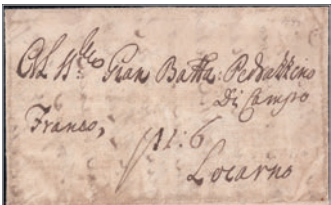 Gian Batta: Pedrazzino
Di Campo
Franco,
11:6
Locarno